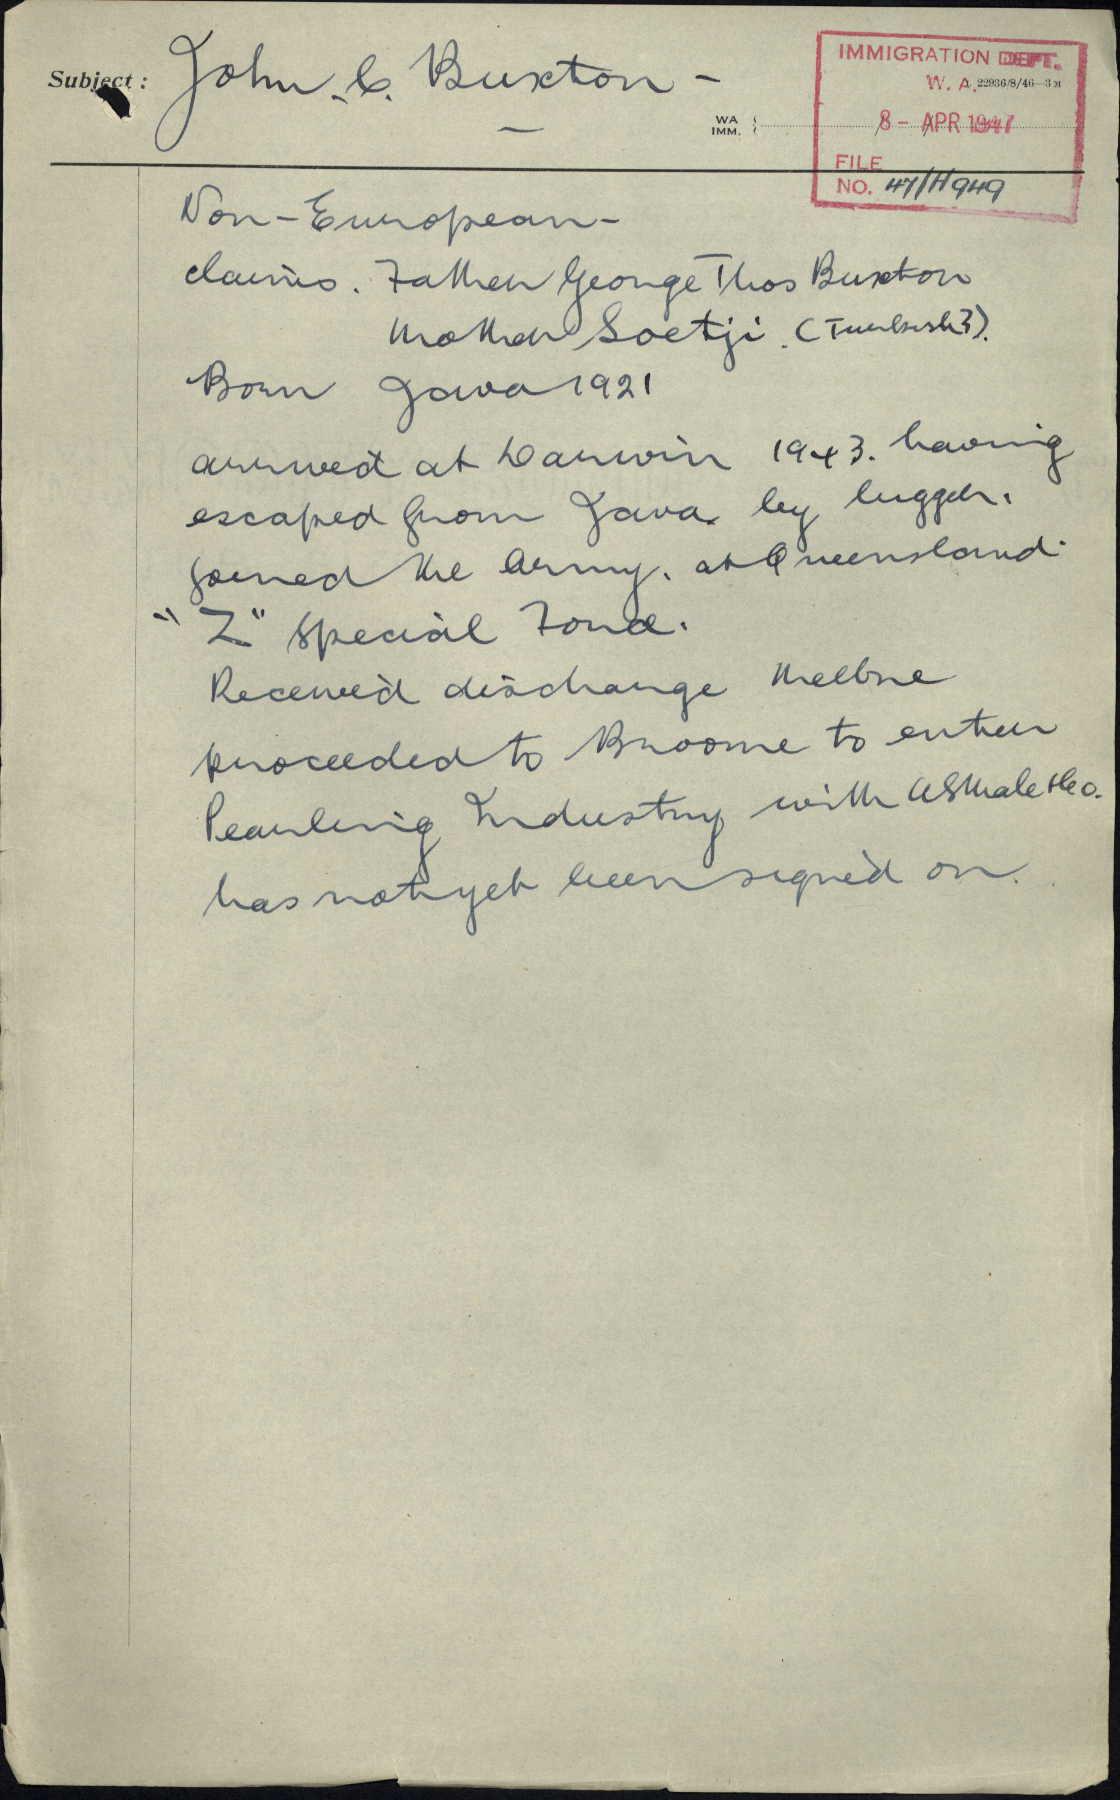 Subject: John. C. Buxton -
IMMIGRATION DEPT.
W. A. 22936/8/46—3M
WA
IMM.
8 - APR 1947
FILE
NO. 47/H949
Non-European-
claims. Father George Thos Buxton
Mother Soetji. (Turkish?).
Born Java 1921
arrived at Darwin 1943. having
escaped from Java. by lugger.
joined the Army. at Queensland.
"Z" Special Force.
Received discharge Melbne
proceeded to Broome to enter
Pearling Industry with & Co.
has not yet been signed on.